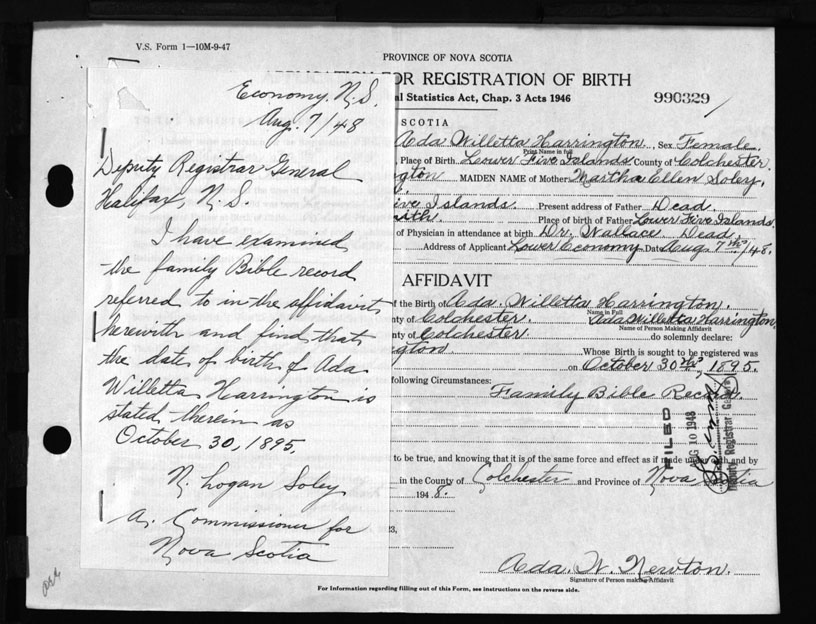 V.S. Form 1—10M-9-47
PROVINCE OF NOVA SCOTIA
FOR REGISTRATION OF BIRTH
al Statistics Act, Chap. 3 Acts 1946
990329
Economy, N.S.
Aug. 7/48
Deputy Registrar General
Halifax, N. S.
I have examined
the family Bible record
referred to in the affidavit
herewith and find that
the date of birth of Ada
Willetta Harrington is
stated therein as
October 30, 1895.
N. Logan Soley
A Commissioner for
Nova Scotia
SCOTIA
Ada Willetta Harrington, Sex Female.
Print Name in full
, Place of Birth Lower Five Islands County of Colchester.
gton MAIDEN NAME of Mother Martha Ellen Soley.
ive Islands. Present address of Father Dead.
Place of birth of Father Lower Five Islands.
of Physician in attendance at birth Dr. Wallace. Dead.
Address of Applicant Lower Economy Date Aug. 7th/48.
AFFIDAVIT
f the Birth of Ada Willetta Harrington.
Name in Full
ty of Colchester. Ada Willetta Harrington,
Name of Person Making Affidavit
ty of Colchester. do solemnly declare:
gton. Whose Birth is sought to be registered was
on October 30th, 1895.
following Circumstances:
Family Bible Record.
FILED
AUG 10 1948
Deputy Registrar General
to be true, and knowing that it is of the same force and effect as if made under oath and by
in the County of Colchester and Province of Nova Scotia
1948.
23,
Ada. W. Newton.
Signature of Person making Affidavit
For Information regarding filling out of this Form, see instructions on the reverse side.